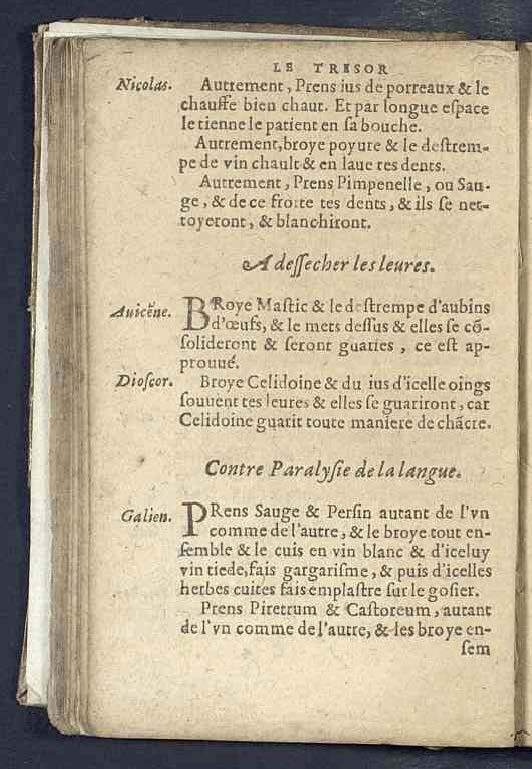 LE TRESOR
Nicolas. Autrement, Prens ius de porreaux & le
chauffe bien chaut. Et par longue eſpace
le tienne le patient en ſa bouche.
Autrement, broye poyure & le deſtrem-
pe de vin chault & en laue tes dents.
Autrement, Prens Pimpenelle, ou Sau-
ge, & de ce frotte tes dents, & ils ſe net-
toyeront, & blanchiront.
A deſſecher les leures.
Auicẽne. BRoye Maſtic & le deſtrempe d'aubins
d'œufs, & le mets deſſus & elles ſe cõ-
ſolideront & ſeront guaries, ce eſt ap-
prouué.
Dioſcor. Broye Celidoine & du ius d'icelle oings
ſouuent tes leures & elles ſe guariront, car
Celidoine guarit toute maniere de chãcre.
Contre Paralyſie de la langue.
Galien. PRens Sauge & Perſin autant de l'vn
comme de l'autre, & le broye tout en-
ſemble & le cuis en vin blanc & d'iceluy
vin tiede, fais gargariſme, & puis d'icelles
herbes cuites fais emplaſtre ſur le goſier.
Prens Piretrum & Caſtoreum, autant
de l'vn comme de l'autre, & les broye en-
ſem